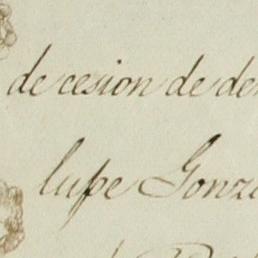 de cesion de de
lupe Gonz